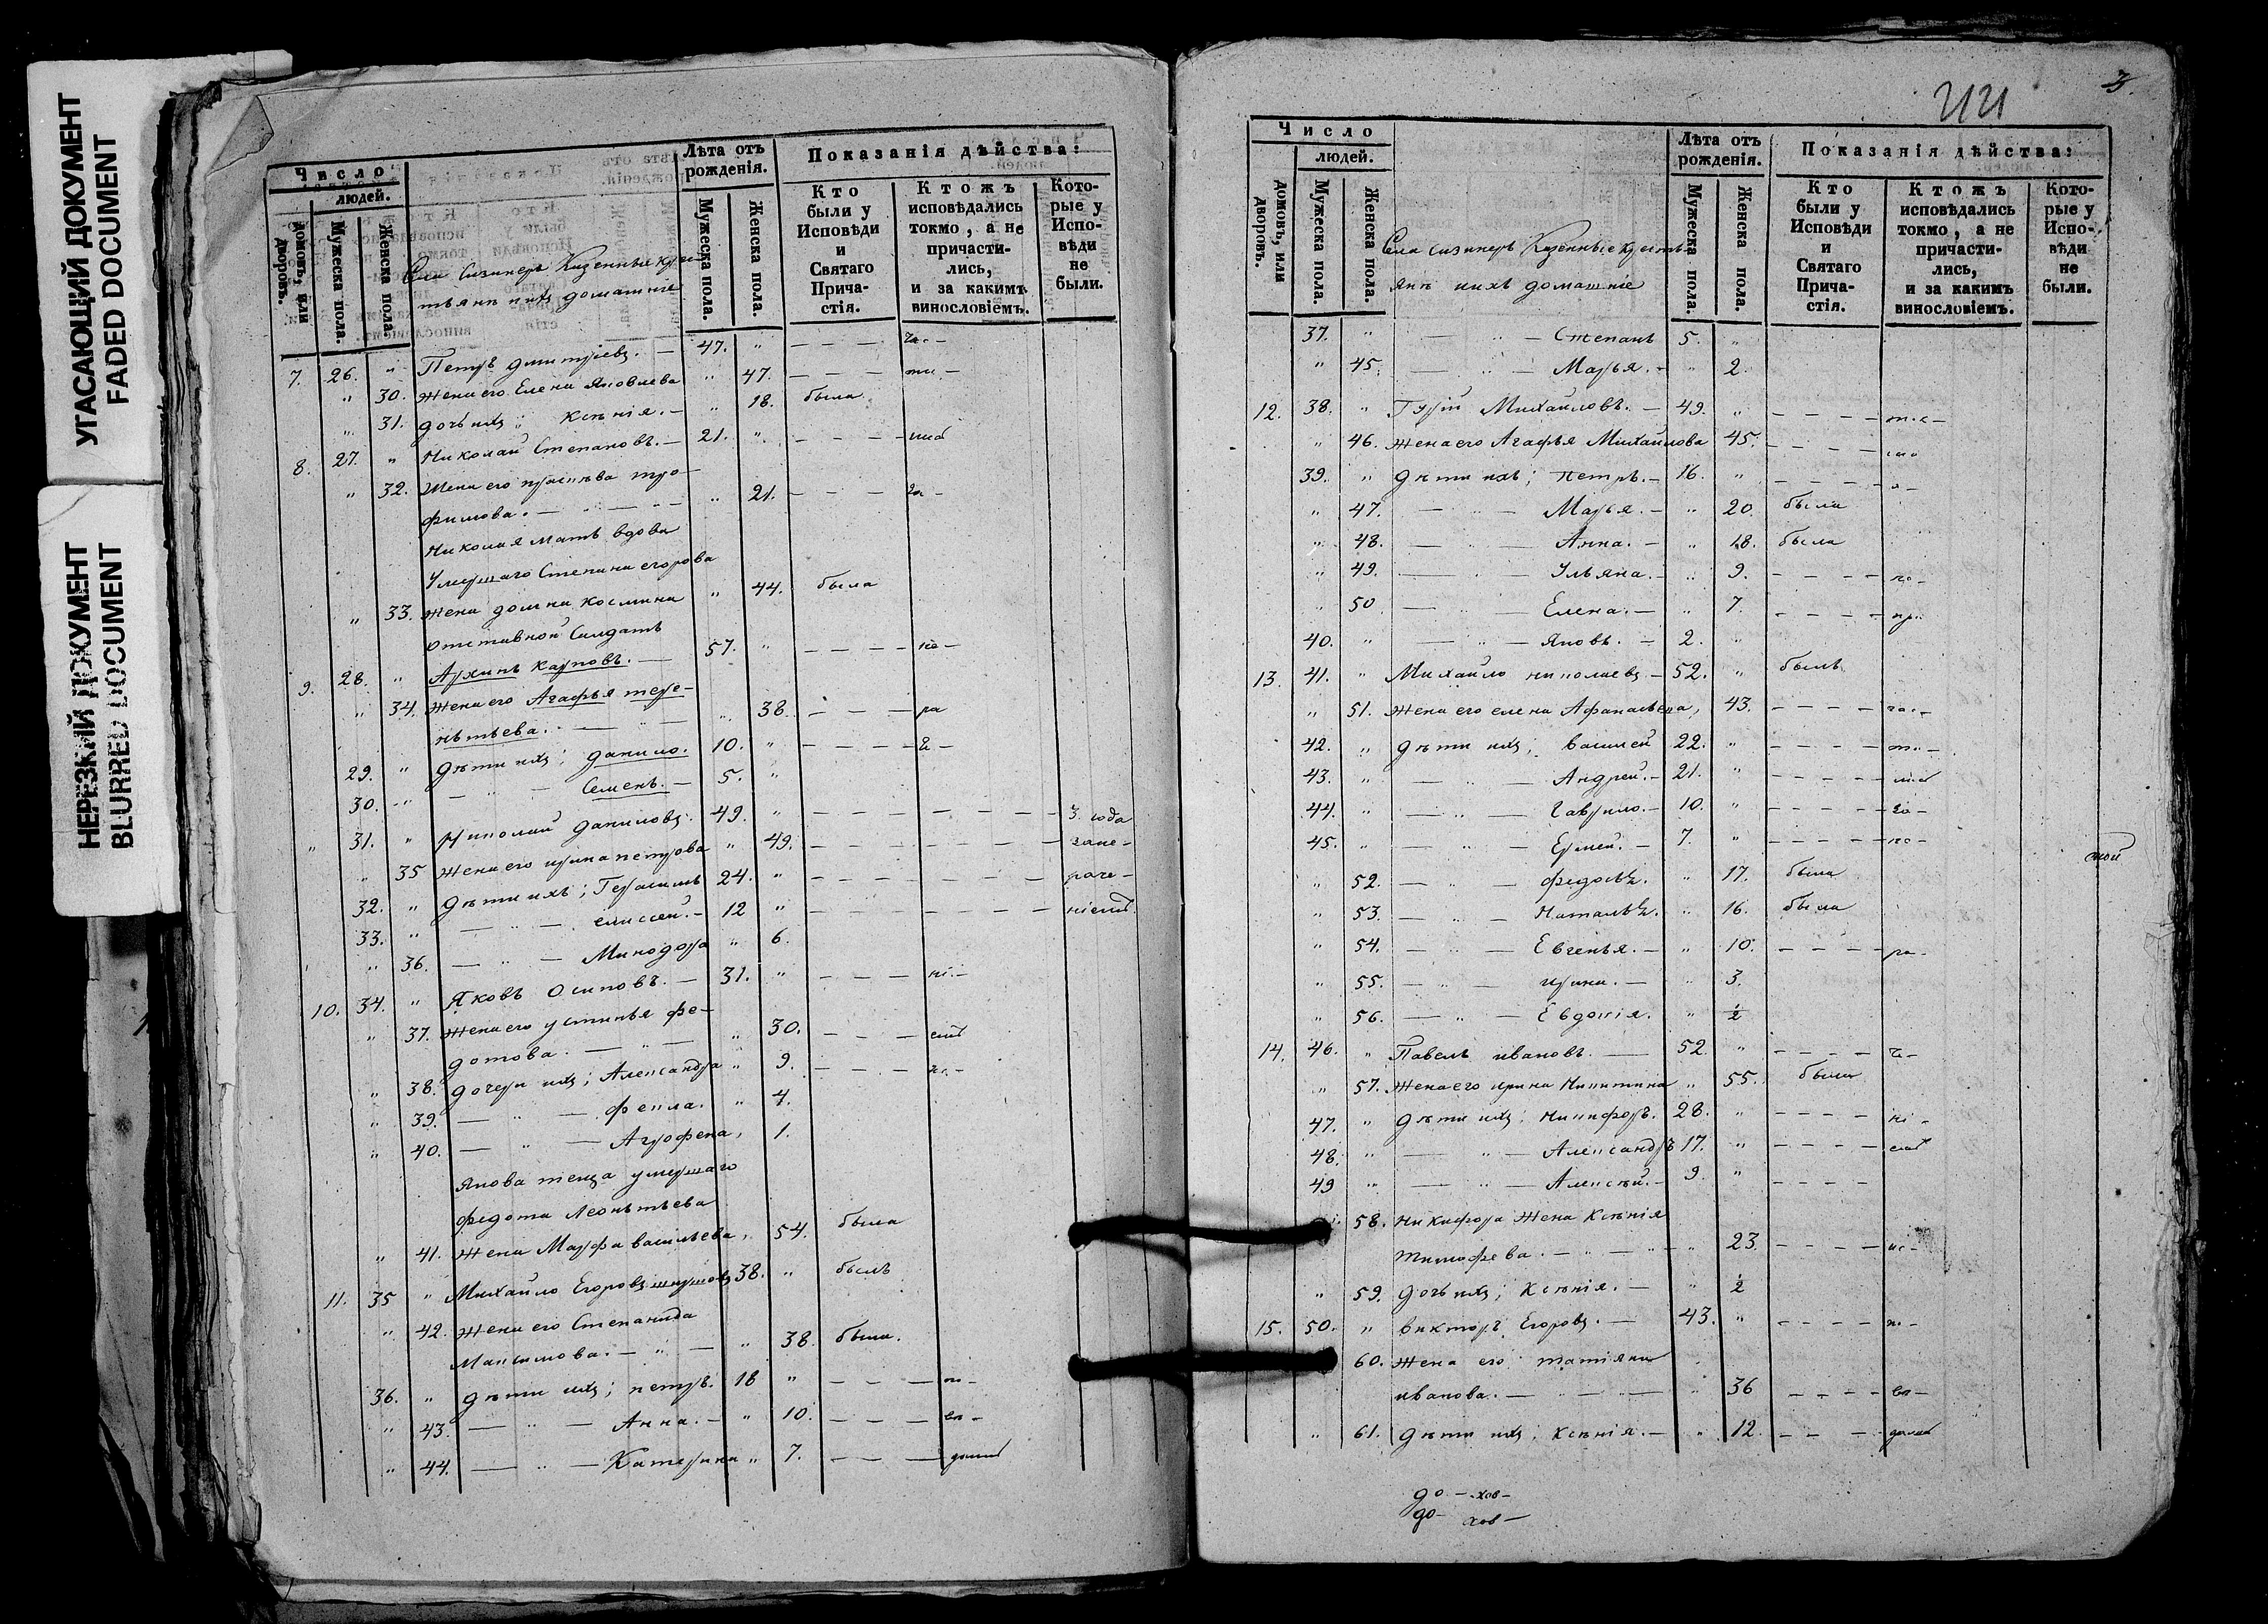 УГАСАЮЩИЙ ДОКУМЕНТ
FADED DOCUMENT
НЕРЕЗКИЙ ДОКУМЕНТ
BLURRED DOCUMENT
Число
людей.
домовъ, или дворовъ.
Мужеска пола.
Женска пола.
Лѣта отъ рожденія.
Мужеска пола.
Женска пола.
Показанія дѣйства:
Кто были у Исповѣди и Святаго Прича-стія.
Ктожъ исповѣдались токмо, а не причасти-лись, и за какимъ винословіемъ.
Кото-рые у Испо-вѣди не были.
Села Казенные крес-
тьянъ ихъ домашніе
7. 26. " Петръ Дмитріевъ. — 47. "
" 30. жена его Елена Яковлева " 47.
" 31. дочь ихъ; Ксенія. — " 18. была
8. 27. " Николай Степановъ. — 21. "
" 32. Жена его тро-
фимова. — " 21.
Николая мать вдова
Умершаго Степана егорова
" 33. жена домна космина " 44. была
отставной Салдатъ
9. 28. " Архипъ Карповъ. — 57. "
" 34. жена его Агафья тере-
нтьева. — " 38.
29. " дѣти ихъ; данило. 10. "
30. " — " — Семенъ. — 5. "
" 31. " Николай даниловъ. 49. " 3. года
" 35 жена его ирина петрова " 49. зане-
32. " дѣти ихъ; Герасимъ 24. " раче-
33. " — " — елисей. — 12 " ніемъ
" 36. — " — Минодора " 6.
10. 34. " Яковъ Осиповъ. — 31. "
" 37. жена его устинья фе-
дотова. — " — " 30.
" 38. дочери ихъ; Александра " 9.
" 39. — " — фекла. " 4.
" 40. — " — Агрофена, 1.
Якова теща умершаго
федота Леонтьева
" 41. жена Марфа васильева, 54. была
11. 35 " Михайло Егоровъ 38. " былъ
" 42. жена его Степанида
Максимова. — " — " 38. была.
36. " дѣти ихъ; петръ. 18 "
" 43. — " — Анна. — " 10.
" 44. — " — Катерина " 7.
3.
Число
людей.
домовъ, или дворовъ.
Мужеска пола.
Женска пола.
Лѣта отъ рожденія.
Мужеска пола.
Женска пола.
Показанія дѣйства:
Кто были у Исповѣди и Святаго Прича-стія.
Ктожъ исповѣдались токмо, а не причасти-лись, и за какимъ винословіемъ.
Кото-рые у Испо-вѣди не были.
Села Казенные кресть-
янъ ихъ домашніе
37. " — " — Степанъ 5. "
" 45. — " — Марья. — " 2.
12. 38. " Гурій Михайловъ. — 49. "
" 46. жена его Агафья Михайлова 45.
39. " дѣти ихъ; Петръ. — 16. "
" 47. — " — Марья. — " 20. была
" 48. — " — Анна. — " 18. была
" 49. — " — Ульяна. — " 9.
" 50 — " — Елена. — " 7.
40. " — " — Яковъ. — 2. "
13. 41. " Михайло николаевъ — 52. " былъ
" 51. жена его елена Афанасьева, 43.
42. " дѣти ихъ; василей 22. "
43. " — " — Андрей. — 21. "
44. " — " — Гаврило. — 10. "
45. " — " — Ермей. — 7. "
" 52. — " — федосья. " 17. была
" 53. — " — Наталья. " 16. была
" 54. — " — Евгенья. — " 10.
" 55. — " — ирина. — " 3.
" 56. — " — Евдокія. " ½
14. 46. " Павелъ ивановъ. — 52. "
" 57. жена его ирина Никитина " 55. была
47. " дѣти ихъ; никифоръ. 28. "
48. " — " — Александръ 17. "
49 " — " — Алексѣй. — 9. "
58. никифора жена Ксенія
тимофева. — " — " 23.
" 59. дочь ихъ; Ксенія. — " ½
15. 50. " викторъ Егоровъ. — 43. "
60. жена его татіяна
иванова. — " — " 36
" 61. дѣти ихъ; Ксенія. — " 12.
до — хов —
до — хов —